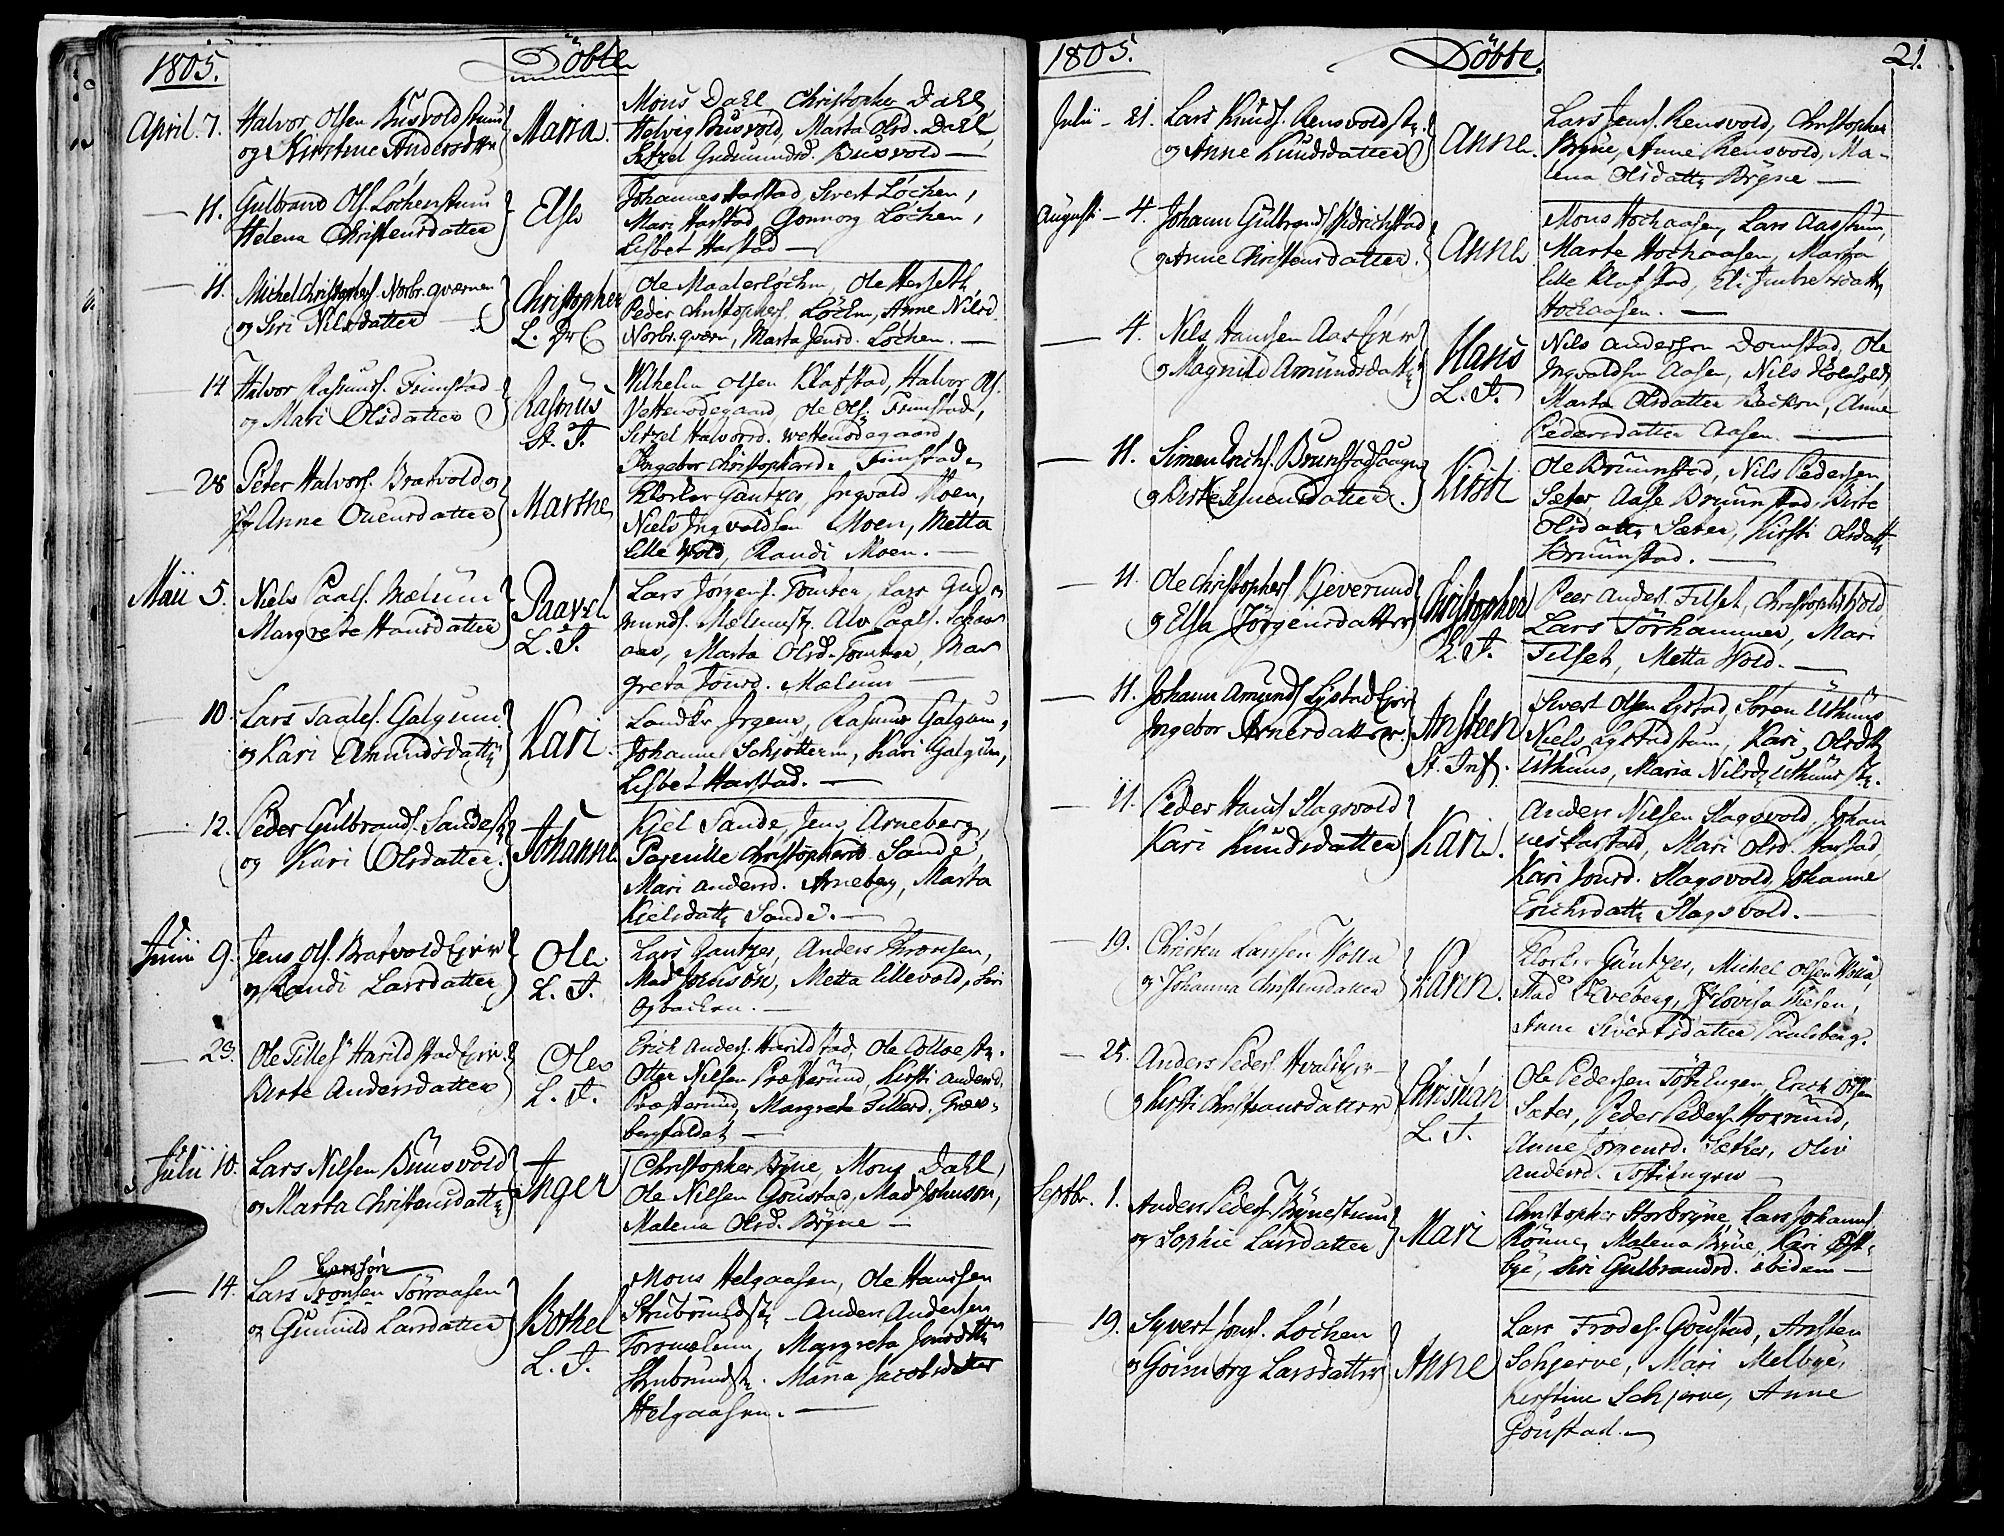 1805. Döbte
April. 7. Halvor Olsen Busvoldstuen
og Kirstine Andersdttr
Maria.
Mons Dahl, Christopher Dahl,
Helvig Busvold, Marta Olsd. Dahl,
Sitzel Gudmundsd. Busvold —
— 11. Gulbrand Ols. Löchenstuen
Helena Christensdatter
Else
Johannes Harstad, Sivert Löchen,
Mari Harstad, Gonnorg Löchen,
Lisbet Harstad —
— 11. Michel Christophers. Norbr. qværnen
og Siri Nilsdatter —
Christopher
Ole Maalerlöchen, Ole Herseth,
Peder Christophers. Löchen, Anne Nilsd.
Norbr.qværn, Marta Jensd. Löchen. —
14 Halvor Rasmuss. Finnstad
og Mari Olsdatter
Rasmus
Wilhelm Olsen Klafstad, Halvor Ols.
Vettenödegaard, Ole Ols. Finnstad,
Sitzel Halvorsd. Wettenödegaard,
Ingebor Christophersd. Finnstad.
— 28 Peter Halvors. Bratvold og
Anne Evensdatter
Marthe
Klocker Gantzes, Ingvald Moen,
Niels Ingvoldsen Moen, Metta
Lille Wold, Randi Moen. —
Maii 5. Niels Paals. Mælum
Margrete Hansdatter
Paavel
L. T.
Lars Jörgens. Tomter, Lars Gud
munds. Mælumst. Alv Paals. Schaar
aas, Marta Olsd. Tomter, Mar
greta Jonsd. Mælum —
— 10. Lars Taales. Galgum
og Kari Amundsdattr
Kari.
Rasmus Galgum,
Johannes Schjötteren, Kari Galgum,
Lisbet Harstad. —
— 12. Peder Gulbrands. Sande
og Kari Olsdatter.
Johanne
Kiel Sande, Jens Arneberg,
Pernille Christophersd. Sande,
Mari Andersd. Arneberg, Marta
Kielsdattr Sande. —
Junii 9. Jens Ols. Bratvold Ejer
og Randi Larsdatter
Ole
L. T.
Lars Gantzes, Anders Thronsen,
Mad Jonsön, Metta Lillevold, Siri
Opbacken. —
— 23. Ole Tilles. Harildstad Ejer.
Berte Andersdatter
Ole
L. T.
Erich Anders. Harildstad, Ole
Otter Nilsen Præsterund, Kirsti Andersd.
Præsterund, Margrete Tillesd. Græs-
bergfaldet —
Julii 10. Lars Nilsen Buusvold
og Marta Christensdattr
Inger
Christopher Bryne, Mons Dahl,
Ole Nilsen Goustad, Mad Johnson,
Malena Olsd. Bryne —
Larssön
— 14. Lars Tronsen Törraasen
og Gunnild Larsdatter
Bothel
L. T.
Mons Helgaasen, Ole Hanssen
Stubsrudst. Anders Andersen
Margreta Jonsdttr
Stubsrudst. Maria Jacobsdatter
Helgaasen. —
1805. Döbte. 21.
Julii — 21. Lars Knuds. Rensvoldst.
og Anne Knudsdatter
Anne.
Lars Jens. Rensvold, Christopher
Bryne, Anne Rensvold, Ma-
lena Olsdattr Bryne —
Augusti — 4. Johann Gulbrands. Fredrichstad
og Anne Christensdatter.
Anne
Mons Hochaasen, Lars Aasstuen,
Marte Hochaasen, Marta
Lille Klafstad, Eli Embretsdattr
Hochaasen. —
— 4. Nils Hanssen Aas Ejer
og Magnild Amundsdattr
Hans
L. T.
Nils Andersen Domstad, Ole
Ingvoldsen Aasen, Nils
Marta Olsdatter Backen, Anne
Pedersdatter Aasen. —
— 11. Simen Erichs. Brunstadhaugen
og Berte Simensdatter.
Kirsti
Ole Brunstad, Nils Pedersen
Sæter, Aase Brunstad, Berte
Olsdattr Sæter, Kirsti Olsdattr
Brunstad. —
— 11. Ole Christophers. Kjeverud
og Else Jörgensdatter
Christopher
L. T.
Peer Anders. Tilset, Christopher Wold,
Lars Törhammer, Mari
Tilset, Metta Wold. —
— 11. Johann Amunds. Lystad Ejer
Ingebor Arnesdatter
Ansteen
Sivert Olsen Lystad, Sören Uthuus
Niels Lystadstuen, Kari Olsdttr
Uthuus, Maria Nilsd. Uthuus st.
— 11. Peder Hans. Slagsvold
Kari Knudsdatter
Kari.
Anders Nilsen Slagsvold, Johan
nes Harstad, Mari Olsd. Harstad,
Kari Jonsd. Slagsvold, Johanne
Erichsdattr Slagsvold. —
— 19. Christen Larssen Wolla
og Johanna Christensdatter
Karen.
Klocker Gantzes, Michel Olsen Wolla,
Mad Eveberg, Lovisa
Anne Sivertsdatter Paulsberg.
— 25. Anders Peders. Hvalsejer —
og Kirsti Christiansdatter
Christian
L. T.
Ole Pedersen Töftiengen, Erich Olsen
Sæter, Peder Peders.
Anne Jörgensd. Sæther, Oliv
Andersd. Töftiengen
Septbr. 1. Anders Peders. Brynestuen
og Sophie Larsdatter
Mari
Christopher Storbryne, Lars Johanns.
Rönne, Malena Bryne, Kari Öst-
bye, Siri Gulbrandsd. ibidem —
— 19. Syvert Jons. Löchen
og Goinorg Larsdatter
Anne
Lars Frodes. Goustad, Arsten
Schjerve, Mari Melbye,
Kerstine Schjerve, Anne
Goustad. —